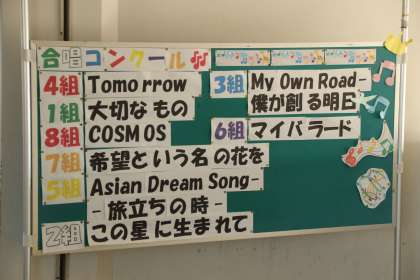 合唱コンクール
4組 Tomorrow
1組 大切なもの
8組 COSMOS
7組 希望という名の花を
5組 Asian Dream Song-
- 旅立ちの時 -
2組 この星に生まれて
3組 My Own Road-
僕が創る明日
6組 マイバラード